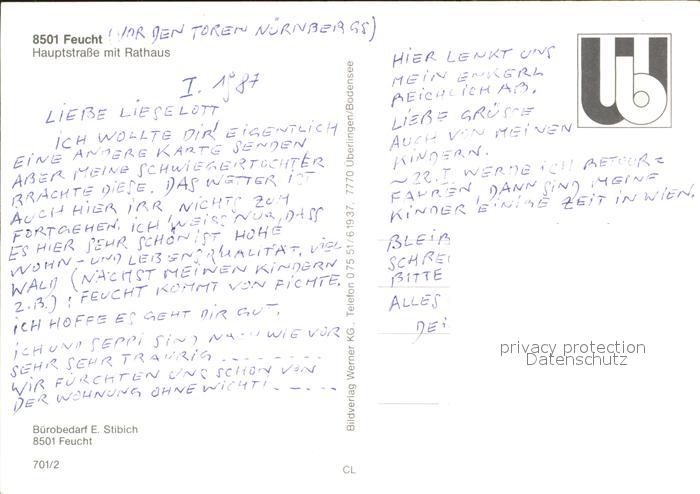 8501 Feucht (VOR DEN TOREN NÜRNBERGS)
Hauptstraße mit Rathaus
I. 1987
LIEBE LIESELOTT
ICH WOLLTE DIR EIGENTLICH
EINE ANDERE KARTE SENDEN
ABER MEINE SCHWIEGERTOCHTER
BRACHTE DIESE. DAS WETTER IST
AUCH HIER IRR NICHTS ZUM
FORTGEHEN. ICH WEISS NUR, DASS
ES HIER SEHR SCHÖN IST HOHE
WOHN- UND LEBENSQUALITÄT, VIEL
WALD (NÄCHST MEINEN KINDERN
Z.B.)! FEUCHT KOMMT VON FICHTE.
ICH HOFFE ES GEHT DIR GUT.
ICH UND SEPPI SIND NACH WIE VOR
SEHR SEHR TRAURIG - - - - - - -
WIR FÜRCHTEN UNS SCHON VON
DER WOHNUNG OHNE WICHTI - - - -
Bürobedarf E. Stibich
8501 Feucht
701/2
Bildverlag Werner KG., Telefon 0 75 51/6 19 37, 7770 Überlingen/Bodensee
CL
HIER LENKT UNS
MEIN ENKERL
REICHLICH AB.
LIEBE GRÜSSE
AUCH VON MEINEN
KINDERN.
~ 22.I. WERDE ICH RETOUR=
FAHREN, DANN SIND MEINE
KINDER EINIGE ZEIT IN WIEN.
BLEIB
SCHREI
BITTE
ALLES
DEI
privacy protection
Datenschutz